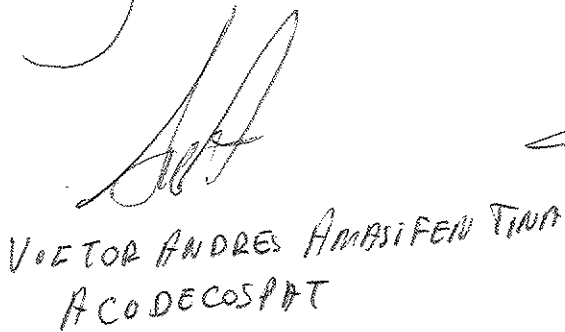 VICTOR ANDRES AMASIFEN TINA
ACODECOSPAT